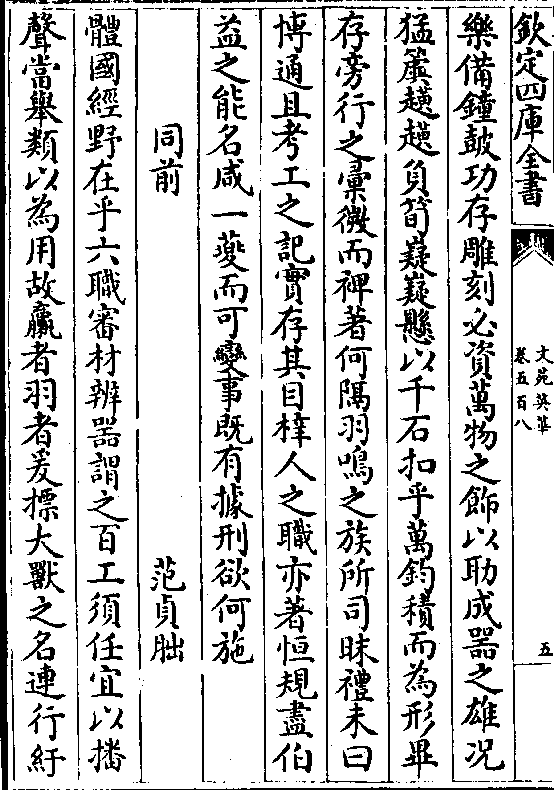 欽定四庫全書
文苑英華
卷五百八
五
樂備鐘鼓功存雕刻必資萬物之飾以助成器之雄况
猛簴趪趪負筍嶷嶷懸以千石扣乎萬鈞積而為形畢
存旁行之彚微而裨著何隔羽鳴之族所司昧禮未曰
博通且考工之記實存其目梓人之職亦著恒規盡伯
益之能名咸一夔而可變事既有據刑欲何施
同前
范貞朏
體國經野在乎六職審材辨器謂之百工須任宜以播
聲當舉類以為用故臝者羽者爰標大獸之名連行紆